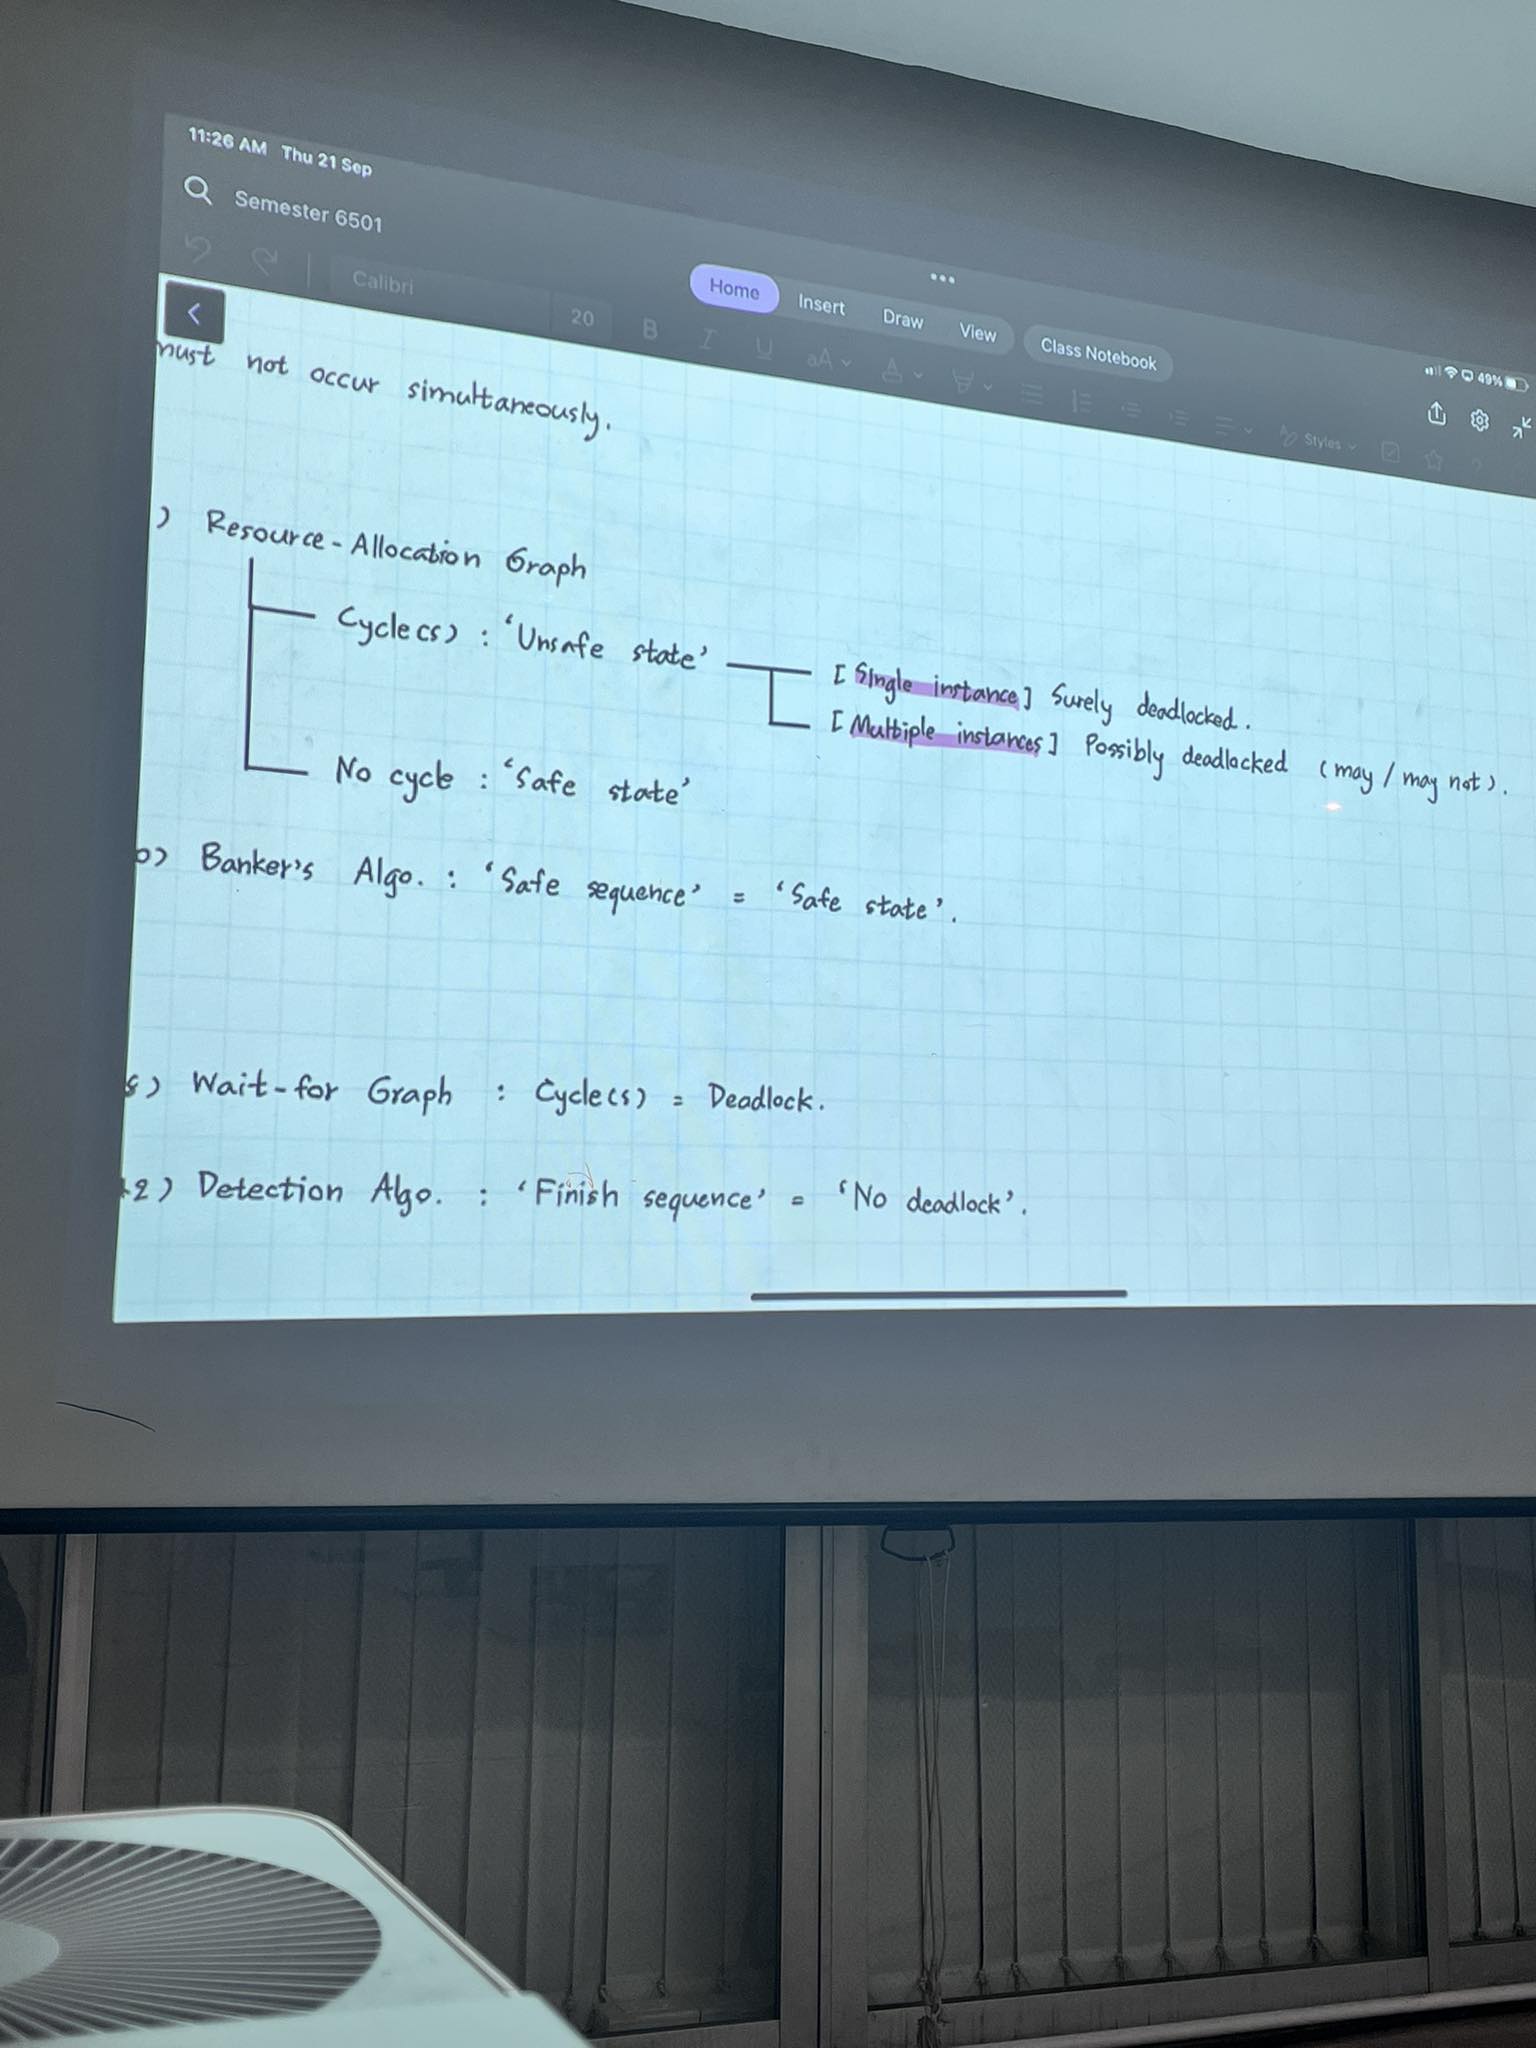 11:26 AM Thu 21 Sep
49%
Semester 6501
Home Insert Draw View Class Notebook
Calibri 20 B I U aA A Styles
must not occur simultaneously.
) Resource-Allocation Graph
Cycle(s) : 'Unsafe state'
[Single instance] Surely deadlocked.
[Multiple instances] Possibly deadlocked (may / may not).
No cycle : 'Safe state'
b) Banker's Algo. : 'Safe sequence' = 'Safe state'.
) Wait-for Graph : Cycle(s) = Deadlock.
2) Detection Algo. : 'Finish sequence' = 'No deadlock'.